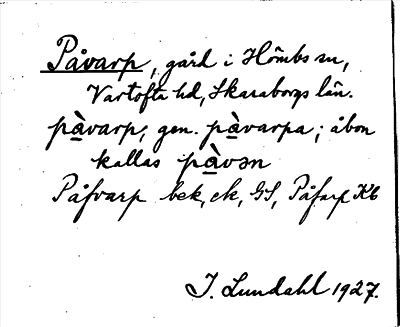 Påvarp, gård i Hömbs sn,
Vartofta hd, Skaraborgs län.
pàvarp, gen. pàvarpa; åbon
kallas pàvən
Påfvarp bek, ek, GS, Påfarp Kb
I. Lundahl 1927.